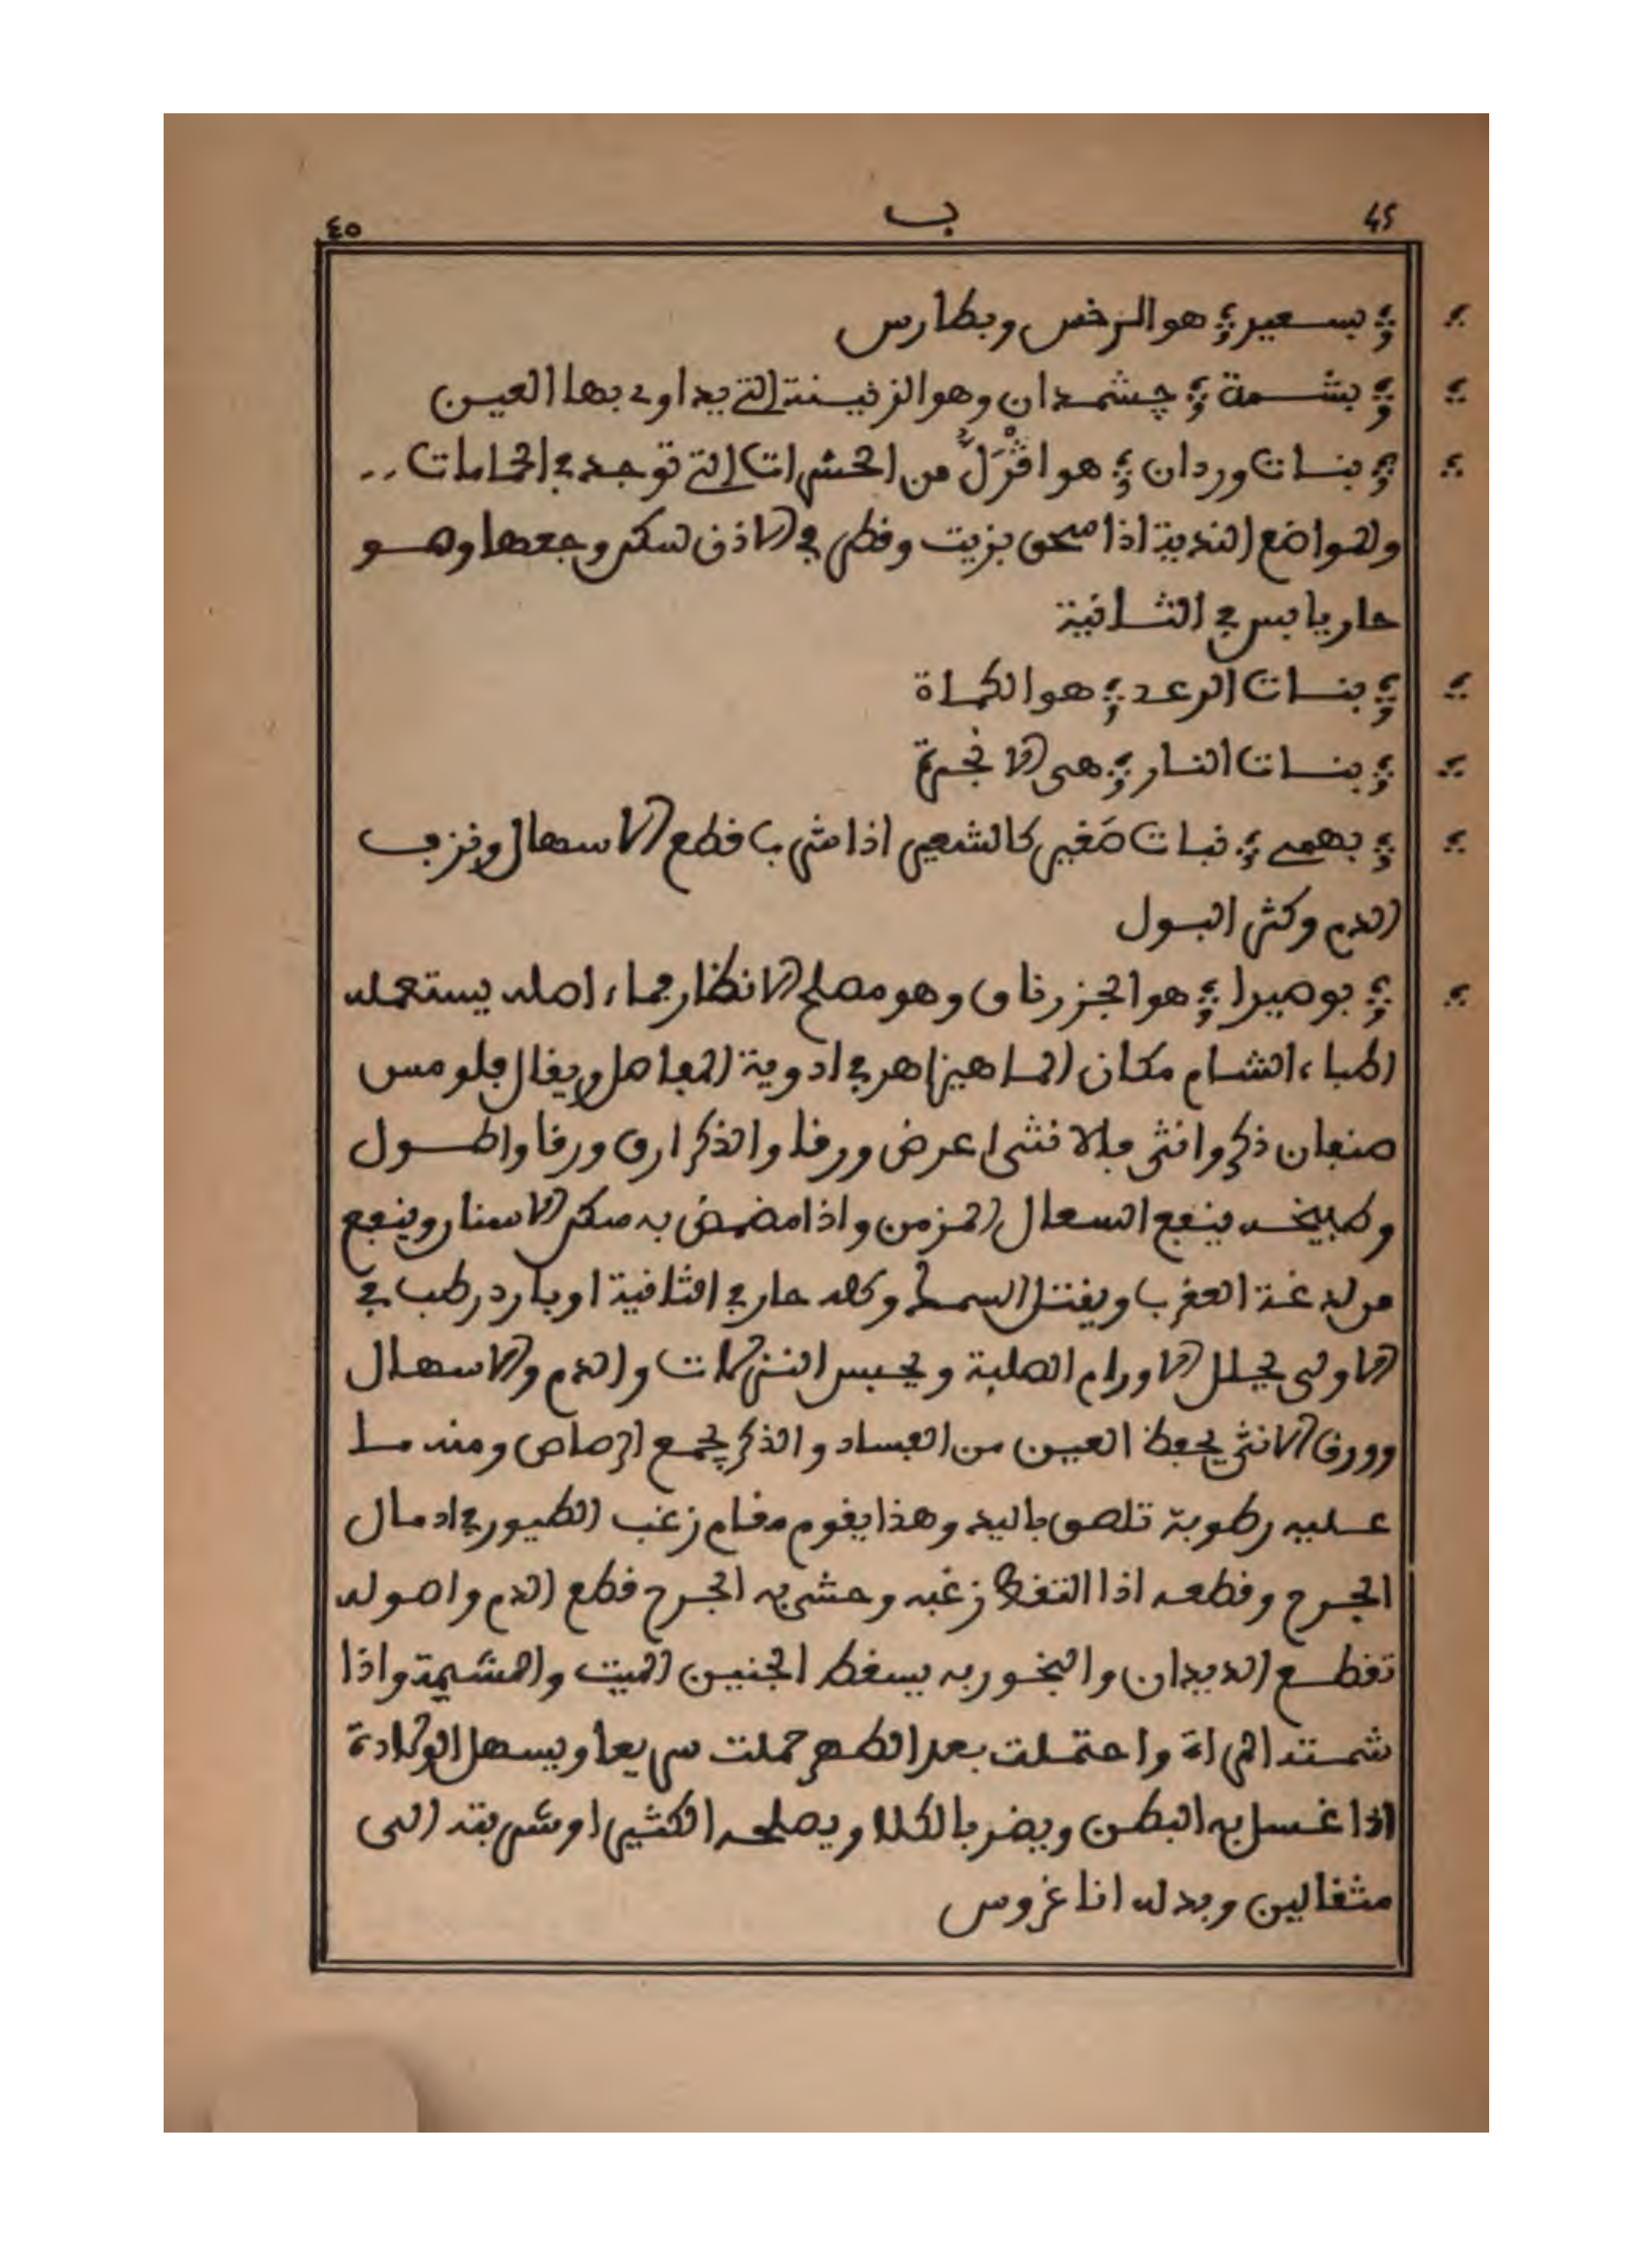 45 ب ٤٥
بسعير هو الرخس وبطارس
بشمة چشمدان وهو الزفيسنة التي يداوى بها العين
بنات وردان هو افزل من الحشرات التي توجد في الحامات
والمواضع الندية اذا سحق بزيت وقطر في الاذن سكن وجعها وهو
حار يابس في الثانية
بنات الرعد هو الكماة
بنات النار هي الانجرة
بهمى نبات صغير كالشعير اذا شرب قطع الاسهال ونزف
الدم وكثر البول
بوصيرا هو الجزرناق وهو مصلح الانظار بماء اصله يستعمله
اطباء الشام مكان الماهيزاهر في ادوية المفاصل ويقال فلومس
صنفان ذكر وانثى فالانثى اعرض ورقا والذكر ارق ورقا واطول
وطبيخه ينفع السعال المزمن واذا مضمض به سكن الاسنان وينفع
من لدغة العقرب ويقتل السمك وكله حار في الثانية او بارد رطب في
الاولى يحلل الاورام الصلبة ويحبس النزلات والدم والاسهال
وورق الانثى يحفظ العين من الفساد والذكر يجمع الرصاص ومنه ما
عليه رطوبة تلصق باليد وهذا يقوم مقام زغب الطيور في ادمال
الجرح وقطعه اذا التقط زغبه وحشي به الجرح قطع الدم واصوله
تقطع الديدان والبخور به يسقط الجنين الميت والمشيمة واذا
شمته المراة واحتملت بعد الطهر حملت سريعا ويسهل الولادة
اذا غسل به البطن ويضر بالكلا ويصلحه الكثيرا وشربته الى
مثقالين وبدله اناغروس